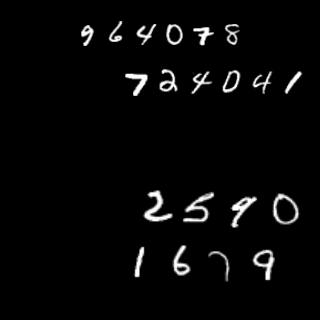 964078
724041
2590
1679